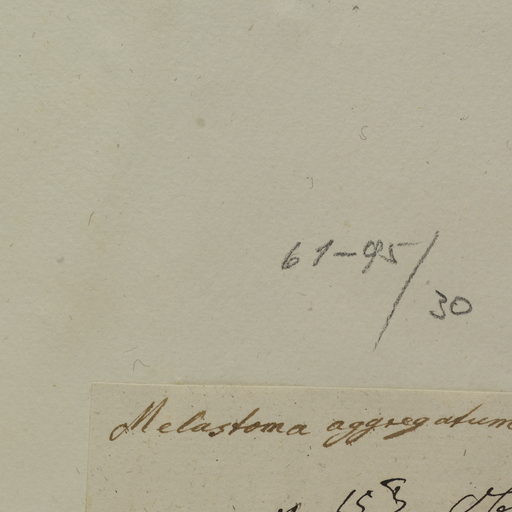 61-95/
30
Melastoma aggregatum
153